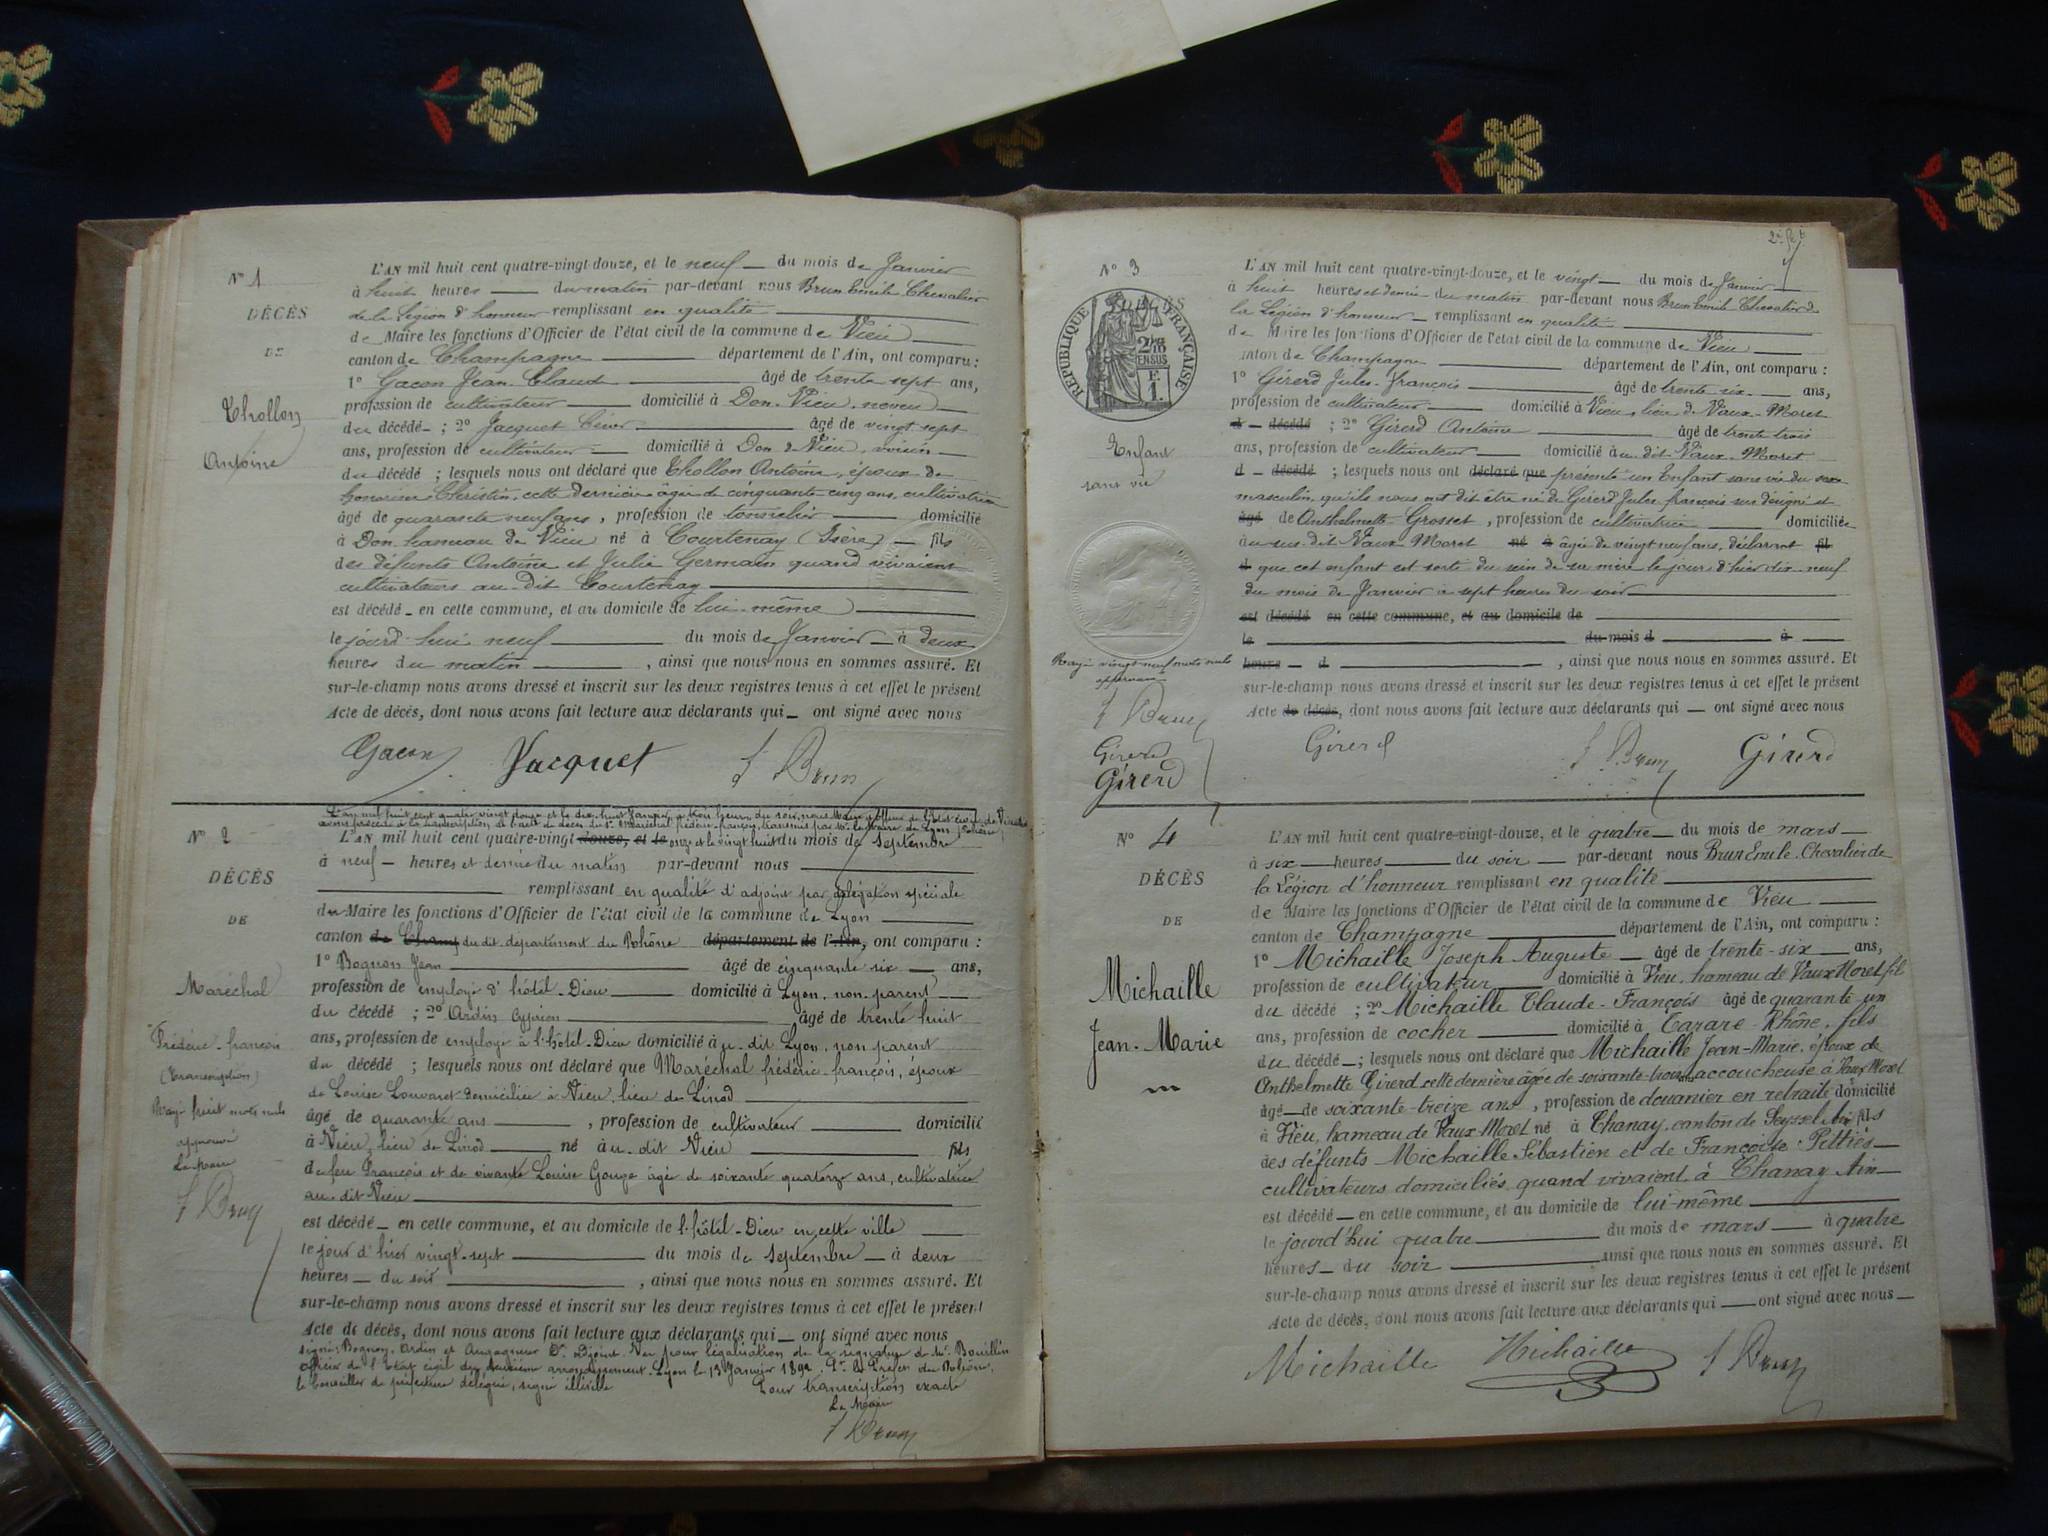 N° 1
DÉCÈS
DE
Chollon
Antoine
L'AN mil huit cent quatre-vingt-douze, et le neuf du mois de Janvier
à huit heures du matin par-devant nous Brun Emile Chevalier
de la Légion d'honneur remplissant en qualité
de Maire les fonctions d'Officier de l'état civil de la commune de Vieu
canton de Champagne département de l'Ain, ont comparu :
1° Gacon Jean-Claude âgé de trente sept ans,
profession de cultivateur domicilié à Don-Vieu, neveu
du décédé ; 2° Jacquet âgé de vingt sept
ans, profession de cultivateur domicilié à Don-Vieu, voisin
du décédé ; lesquels nous ont déclaré que Chollon Antoine, époux de
Christin, cette dernière âgée de cinquante-cinq ans, cultivatrice
âgé de quarante neuf ans, profession de tonnelier domicilié
à Don hameau de Vieu né à Courtenay (Isère) fils
des défunts Antoine et Julie Germain quand vivaient
cultivateurs au-dit Courtenay
est décédé en cette commune, et au domicile de lui-même
le jourd'hui neuf du mois de Janvier à deux
heures du matin, ainsi que nous nous en sommes assuré. Et
sur-le-champ nous avons dressé et inscrit sur les deux registres tenus à cet effet le présent
Acte de décès, dont nous avons fait lecture aux déclarants qui ont signé avec nous
Gacon Jacquet Brun
N° 2
DÉCÈS
DE
Maréchal
Frédéric-françois
(Transcription)
Rayé huit mots nuls
approuvé
Le Maire
Brun
L'an mil huit cent quatre vingt douze et le dix-huit Janvier à trois heures du soir, nous Maire et Officier de l'Etat civil de Vieu
avons procédé à la transcription de l'acte de décès du Sr Maréchal frédéric-françois, transmis par Mr le Maire de Lyon
L'AN mil huit cent quatre-vingt douze, et le onze et le vingt huit du mois de Septembre
à neuf heures et demie du matin par-devant nous
remplissant en qualité d'adjoint par délégation spéciale
du Maire les fonctions d'Officier de l'état civil de la commune de Lyon
canton de Champ du dit département du Rhône département de l'Ain, ont comparu :
1° Bognon Jean âgé de cinquante six ans,
profession de employé à l'hôtel-Dieu domicilié à Lyon, non-parent
du décédé ; 2° Ardin Cyprien âgé de trente huit
ans, profession de employé à l'hôtel-Dieu domicilié à u-dit Lyon, non parent
du décédé ; lesquels nous ont déclaré que Maréchal frédéric-françois, époux
de Louise Louvaret domiciliée à Vieu, lieu de Linod
âgé de quarante ans, profession de cultivateur domicilié
à Vieu, lieu de Linod né à u-dit Vieu fils
de feu François et de vivante Louise Gouge âgée de soixante quatorze ans, cultivatrice
au dit Vieu
est décédé en cette commune, et au domicile de l'hôtel-Dieu en cette ville
le jour d'hier vingt-sept du mois de Septembre à deux
heures du soir, ainsi que nous nous en sommes assuré. Et
sur-le-champ nous avons dressé et inscrit sur les deux registres tenus à cet effet le présent
Acte de décès, dont nous avons fait lecture aux déclarants qui ont signé avec nous
signé: Bognon, Ardin et Augagneur Dr Adjoint. Vu pour légalisation de la signature de Mr Bouillin
officier de l'état civil du deuxième arrondissement. Lyon le 13 Janvier 1892. Pr le Préfet du Rhône,
le Conseiller de préfecture délégué, signé illisible
Pour transcription exacte
Le Maire
Brun
N° 3
DÉCÈS
RÉPUBLIQUE FRANÇAISE
2/10 EN SUS
F.
1.
Enfant
sans vie
Rayé vingt neuf mots nuls
approuvé
Brun
Girerd
Girerd
L'AN mil huit cent quatre-vingt-douze, et le vingt du mois de Janvier
à huit heures et demie du matin par-devant nous Brun Emile Chevalier de
la Légion d'honneur remplissant en qualité
de Maire les fonctions d'Officier de l'état civil de la commune de Vieu
canton de Champagne département de l'Ain, ont comparu :
1° Girerd Jules-françois âgé de trente-six ans,
profession de cultivateur domicilié à Vieu, lieu de Vaux-Moret
d décédé ; 2° Girerd Antoine âgé de trente trois
ans, profession de cultivateur domicilié à u dit Vaux-Moret
d décédé ; lesquels nous ont déclaré que présenté un Enfant sans vie du sexe
masculin, qu'ils nous ont dit être né de Girerd Jules-françois sus désigné et
âgé de Anthelmette Grosset, profession de cultivatrice domiciliée
au sus-dit Vaux-Moret né à âgée de vingt neuf ans, déclarant fil
d que cet enfant est sorti du sein de sa mère le jour d'hier dix-neuf
du mois de Janvier à sept heures du soir
est décédé en cette commune, et au domicile de
le du mois d à
heures d, ainsi que nous nous en sommes assuré. Et
sur-le-champ nous avons dressé et inscrit sur les deux registres tenus à cet effet le présent
Acte de décès, dont nous avons fait lecture aux déclarants qui ont signé avec nous
Girerd Brun Girerd
N° 4
DÉCÈS
DE
Michaille
Jean-Marie
L'AN mil huit cent quatre-vingt-douze, et le quatre du mois de mars
à six heures du soir par-devant nous Brun Emile, Chevalier de
la Légion d'honneur remplissant en qualité
de Maire les fonctions d'Officier de l'état civil de la commune de Vieu
canton de Champagne département de l'Ain, ont comparu :
1° Michaille Joseph Auguste âgé de trente-six ans,
profession de cultivateur domicilié à Vieu, hameau de Vaux Moret, fils
du décédé ; 2° Michaille Claude-François âgé de quarante-un
ans, profession de cocher domicilié à Tarare-Rhône, fils
du décédé ; lesquels nous ont déclaré que Michaille Jean-Marie, époux de
Anthelmette Girerd, cette dernière âgée de soixante-trois ans accoucheuse à Vaux Moret
âgé de soixante-treize ans, profession de douanier en retraite domicilié
à Vieu, hameau de Vaux-Moret né à Chanay, canton de Seyssel fils
des défunts Michaille Sébastien et de Françoise Pettiés
cultivateurs domiciliés quand vivaient à Chanay Ain
est décédé en cette commune, et au domicile de lui-même
le jourd'hui quatre du mois de mars à quatre
heures du soir ainsi que nous nous en sommes assuré. Et
sur-le-champ nous avons dressé et inscrit sur les deux registres tenus à cet effet le présent
Acte de décès, dont nous avons fait lecture aux déclarants qui ont signé avec nous
Michaille Michaille Brun